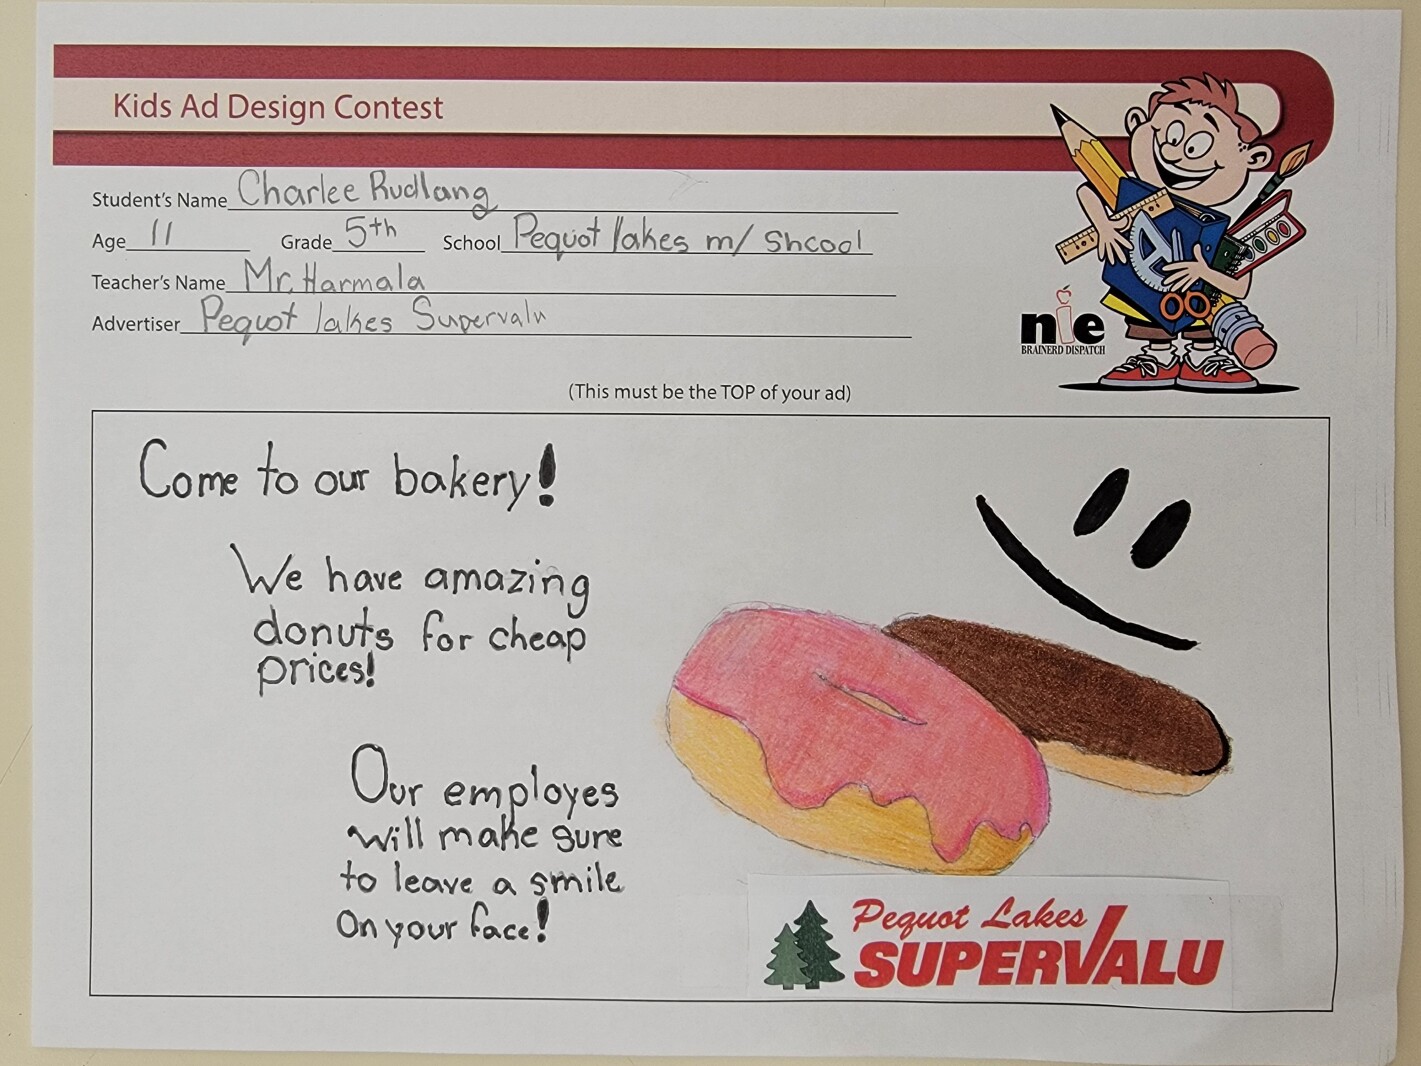 Kids Ad Design Contest
Student's Name Charlee Rudlang
Age 11 Grade 5th School Pequot lakes m/ Shcool
Teacher's Name Mr. Harmala
Advertiser Pequot lakes Supervalu
nie
BRAINERD DISPATCH
(This must be the TOP of your ad)
Come to our bakery!
We have amazing
donuts for cheap
prices!
Our employes
will make sure
to leave a smile
on your face!
Pequot Lakes
SUPERVALU